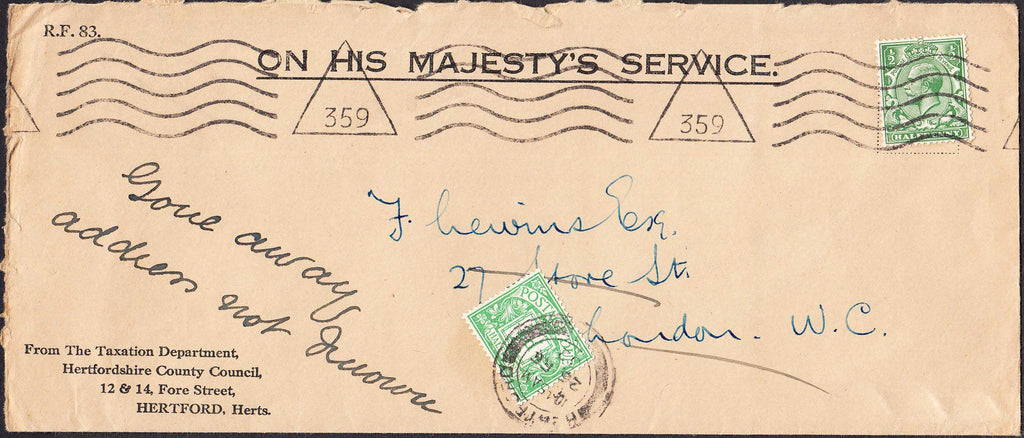 R.F. 83.
ON HIS MAJESTY'S SERVICE.
359
359
½ ½
HALFPENNY
Gone away
address not
known
F. Lewins Esq.
27 Store St.
London. W.C.
POSTA
From The Taxation Department,
Hertfordshire County Council,
12 & 14, Fore Street,
HERTFORD, Herts.